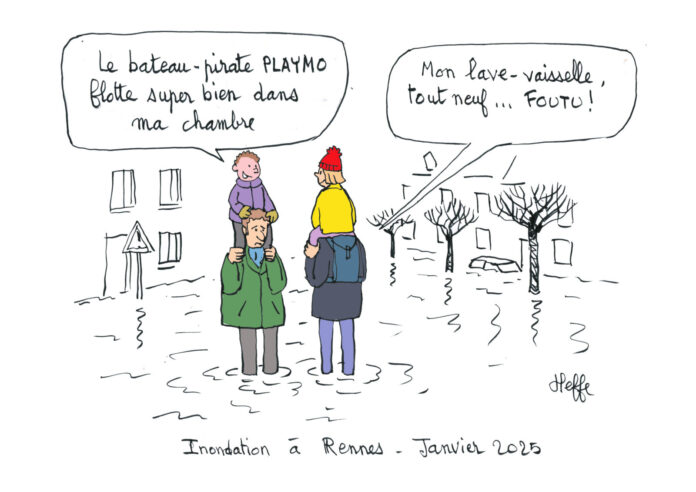 Le bateau-pirate PLAYMO
flotte super bien dans
ma chambre
Mon lave-vaisselle,
tout neuf... FOUTU!
Heffe
Inondation à Rennes - Janvier 2025